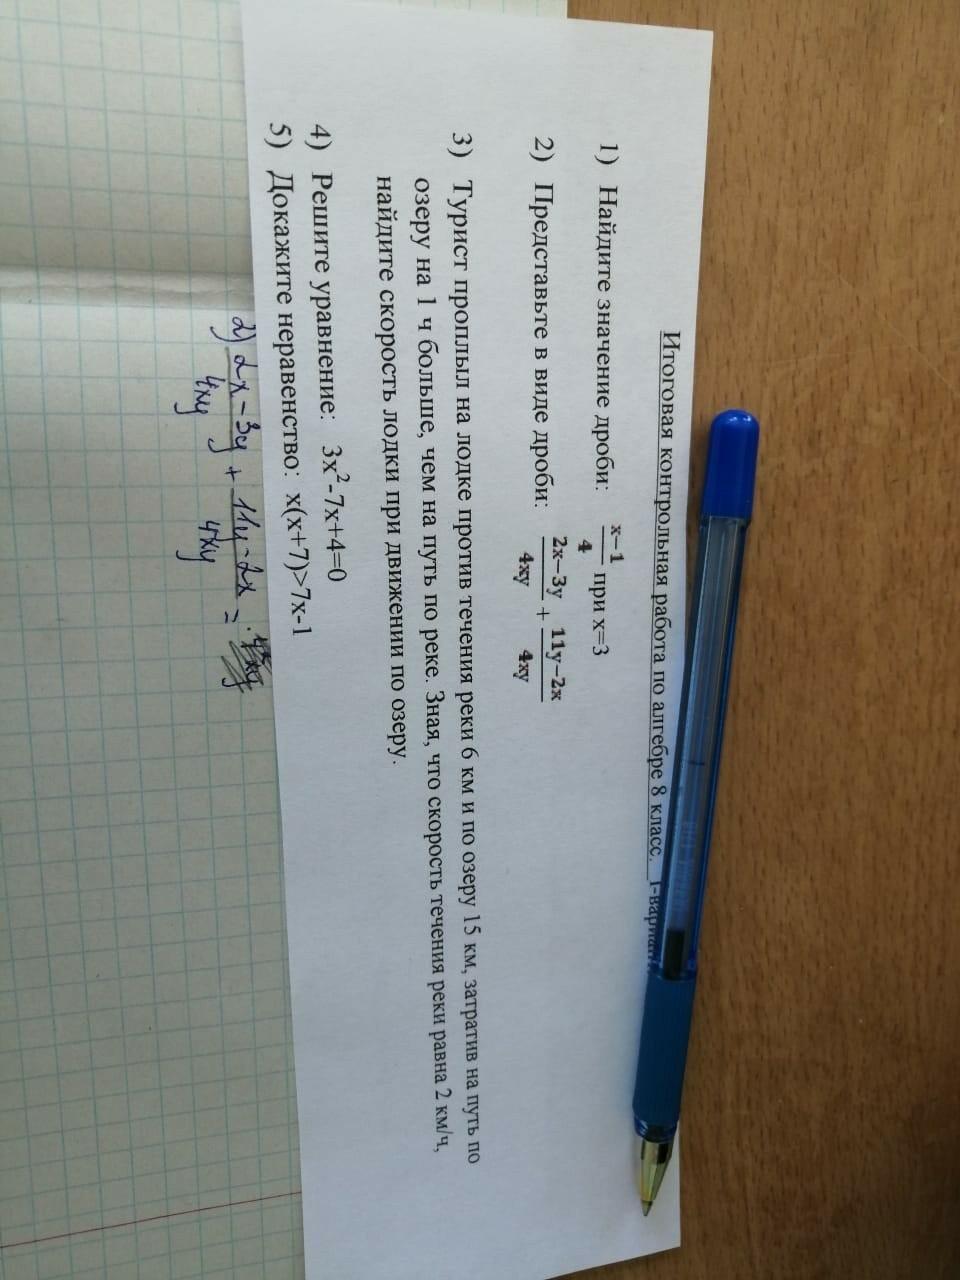 Итоговая контрольная работа по алгебре 8 класс. 1-вариант
1) Найдите значение дроби: x−1/4 при x=3
2) Представьте в виде дроби: 2x−3y/4xy + 11y−2x/4xy
3) Турист проплыл на лодке против течения реки 6 км и по озеру 15 км, затратив на путь по
озеру на 1 ч больше, чем на путь по реке. Зная, что скорость течения реки равна 2 км/ч,
найдите скорость лодки при движении по озеру.
4) Решите уравнение: 3x²-7x+4=0
5) Докажите неравенство: x(x+7)>7x-1
2) 2x-3y/4xy + 11y-2x/4xy =